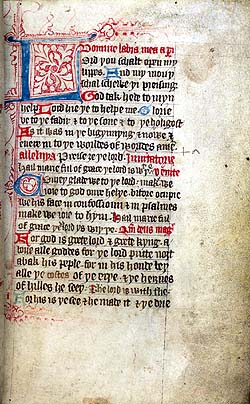 Domine labia mea ap
Lord you schalt open my
lippes. And my mouþ
schal schewe þi preising:
God tak hede to myn
help. Lord hie þe to helpe me. Glorie
be to þe fadir & to þe sone & to þe holi gost
As it was in þe bigynnyng & now & 
euere in to þe worldes of worldes amē
alleluya Preise ȝe þe lord. Inuitatorie
Hail marie ful of grace þe lord is wiþ þe Venite
Come ȝe glade we to þe lord: make we
ioie to god oure helþe. bifore ocupie
we his face in confessioun & in psalmes
make we ioie to hym. Hail marie ful
of grace þe lord is wiþ þe. Qm deus mag
For god is grete lord & grete kyng: a
boue alle goddes for þe lord putte not
abak his peple. for in his honde ben
alle þe costes of þe erþe. & þe heiȝnes
of hilles he seeþ. The lord is with the
For his is þe see & he made it & þe drie